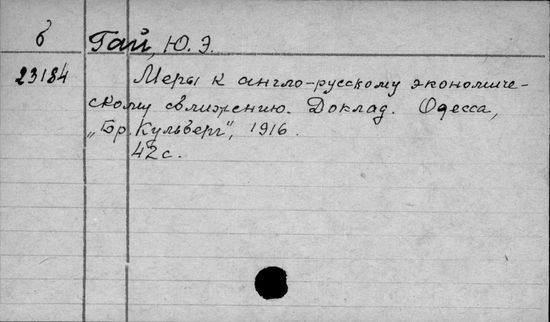 б
Гай, Ю. Э.
23184
Меры к англо-русскому экономиче-
скому сближению. Доклад. Одесса,
„Бр. Кульберг", 1916.
42 с.